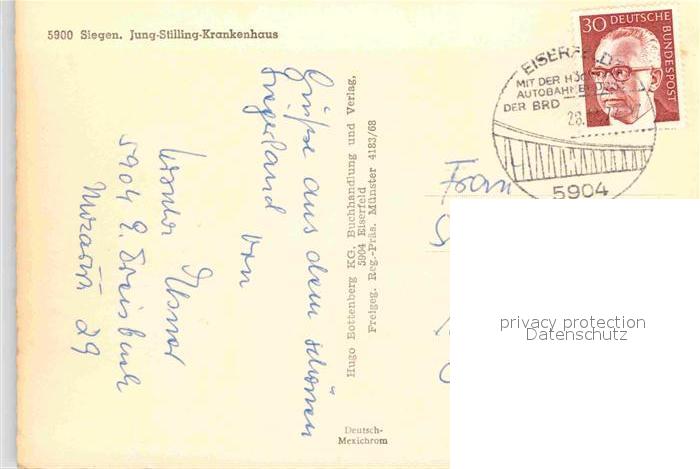 5900 Siegen. Jung-Stilling-Krankenhaus
Grüße aus dem schönen
Siegerland von
Werner
5904
29
Hugo Bottenberg KG, Buchhandlung und Verlag,
5904 Eiserfeld
Freigeg. Reg.-Präs. Münster 4183/68
Deutsch-
Mexichrom
30 DEUTSCHE
BUNDESPOST
MIT DER
AUTOBAHN
DER BRD
5904
Frau
privacy protection
Datenschutz